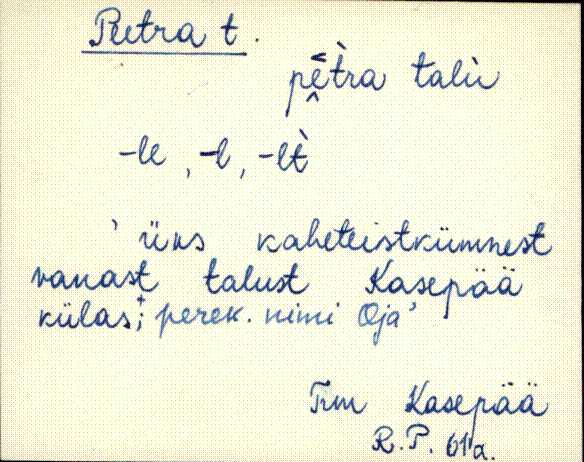 Peetra t.
pètra talù
-le, -l, -lt̀
' üks kaheteistkümnest
vanast talust Kasepää
külas; perek. nimi Oja'
Trm Kasepää
R.P. 61a.